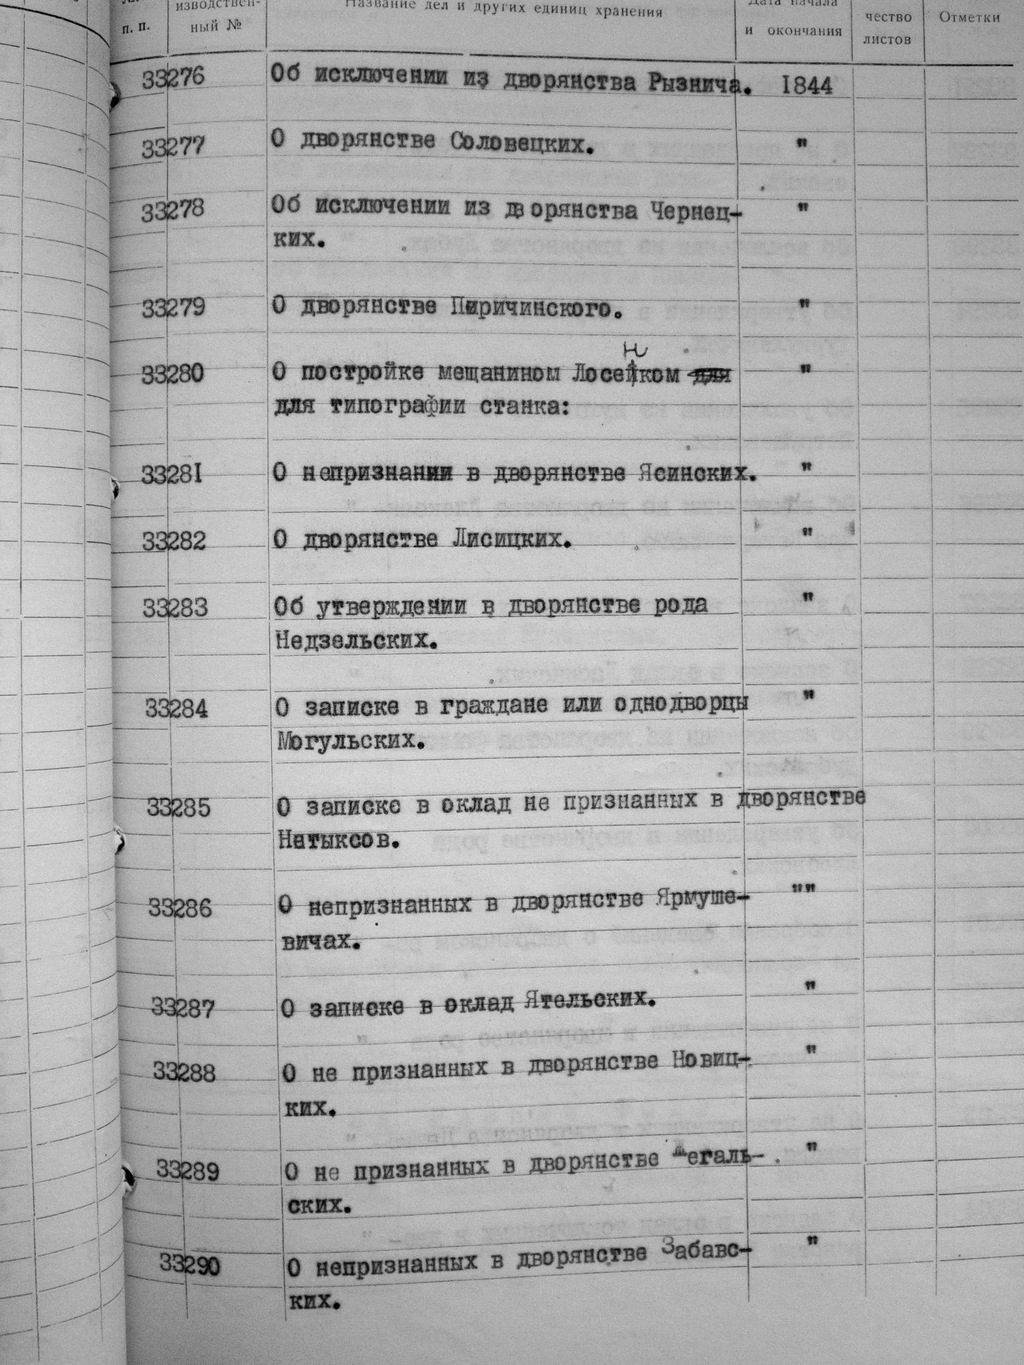 п. п.
изводствен-
ный №
Название дел и других единиц хранения
Дата начала
и окончания
чество
листов
Отметки
33276 Об исключении из дворянства Рызнича. 1844
33277 О дворянстве Соловецких. "
33278 Об исключении из дворянства Чернец- "
ких.
33279 О дворянстве Пиричинского. "
33280 О постройке мещанином Лосенком для "
для типографии станка:
33281 О непризнании в дворянстве Ясинских. "
33282 О дворянстве Лисицких. "
33283 Об утверждении в дворянстве рода "
Недзельских.
33284 О записке в граждане или однодворцы "
Могульских.
33285 О записке в оклад не признанных в дворянстве
Натыксов.
33286 О непризнанных в дворянстве Ярмуше- ""
вичах.
33287 О записке в оклад Ятельских. "
33288 О не признанных в дворянстве Новиц- "
ких.
33289 О не признанных в дворянстве Дегаль- "
ских.
33290 О непризнанных в дворянстве Забавс- "
ких.